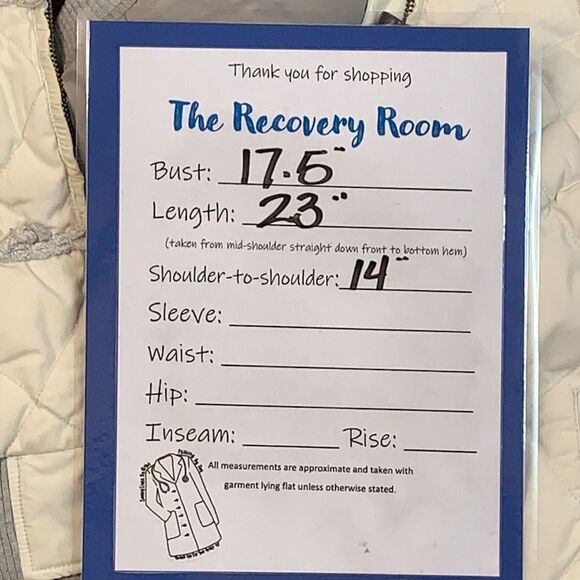 Thank you for shopping
The Recovery Room
Bust: 17.5"
Length: 23"
(taken from mid-shoulder straight down front to bottom hem)
Shoulder-to-shoulder: 14"
Sleeve:
Waist:
Hip:
Inseam: Rise:
All measurements are approximate and taken with
garment lying flat unless otherwise stated.